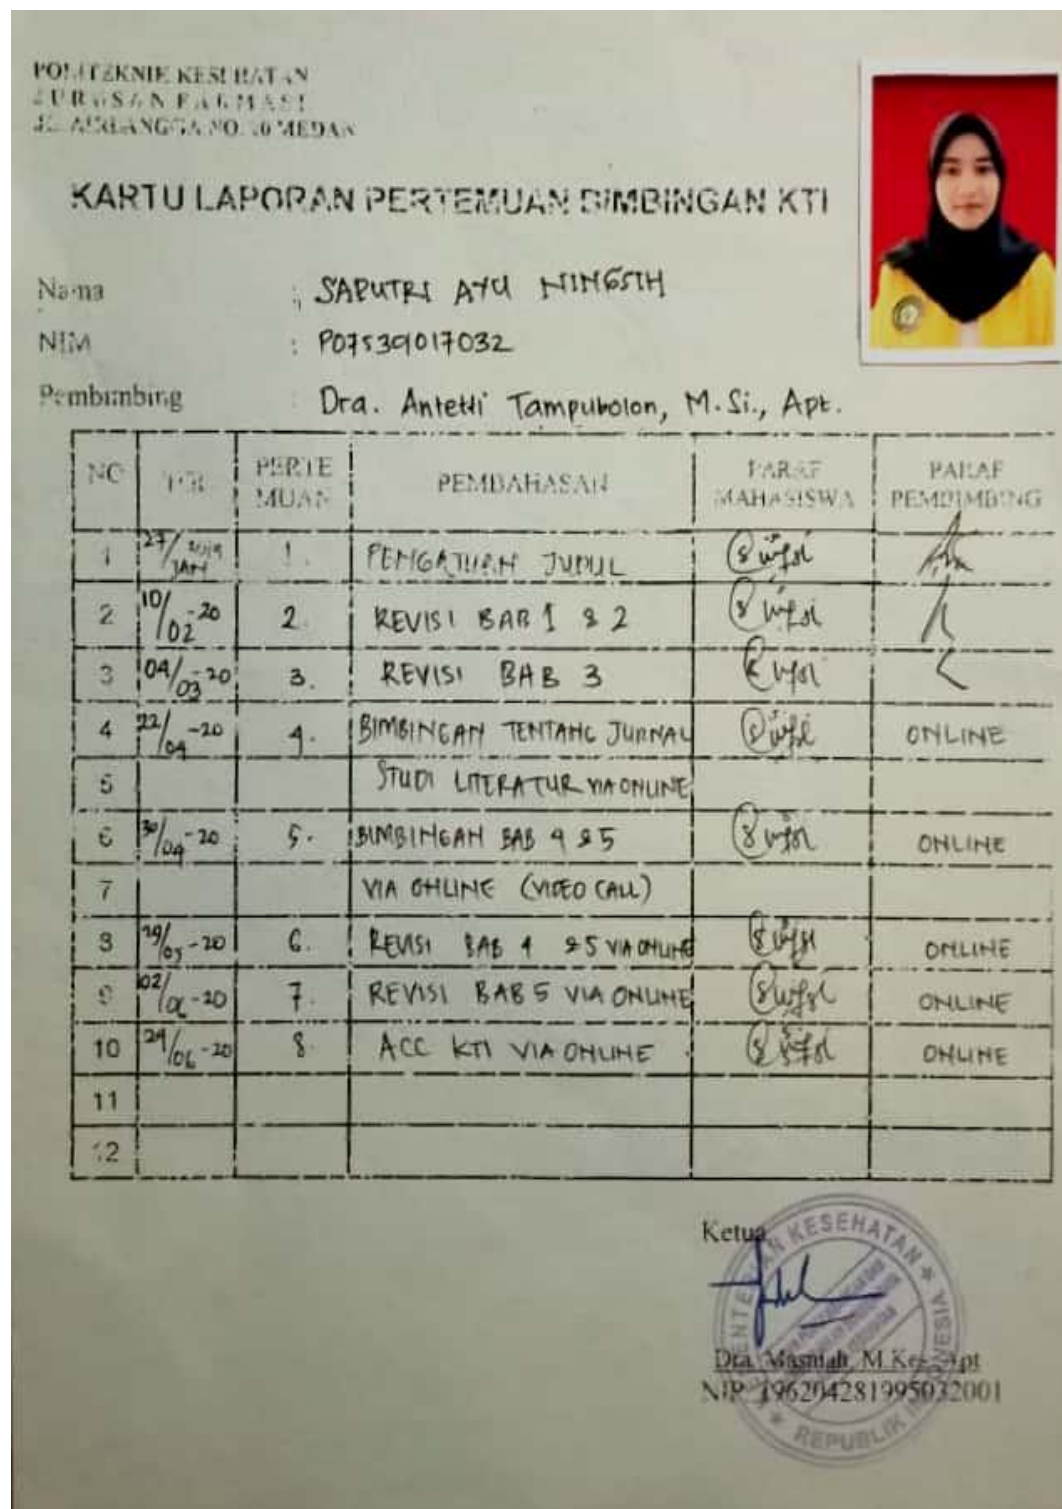 POLITEKNIK KESEHATAN
JURUSAN FARMASI
JL. AIRLANGGA NO. 20 MEDAN
KARTU LAPORAN PERTEMUAN BIMBINGAN KTI
Nama : SAPUTRI AYU NINGSIH
NIM : P07539017032
Pembimbing : Dra. Antetti Tampubolon, M.Si., Apt.
NO TGL PERTE MUAN PEMBAHASAN PARAF MAHASISWA PARAF PEMBIMBING
1 27/JAN 2019 1. PENGAJUAN JUDUL
2 10/02-20 2. REVISI BAB 1 & 2
3 04/03-20 3. REVISI BAB 3
4 22/04-20 4. BIMBINGAN TENTANG JURNAL ONLINE
5 STUDI LITERATUR VIA ONLINE
6 30/04-20 5. BIMBINGAN BAB 4 & 5 ONLINE
7 VIA ONLINE (VIDEO CALL)
8 /05-20 6. REVISI BAB 4 & 5 VIA ONLINE ONLINE
9 02/06-20 7. REVISI BAB 5 VIA ONLINE ONLINE
10 /06-20 8. ACC KTI VIA ONLINE ONLINE
11
12
Ketua
KEMENTERIAN KESEHATAN
Dra. Masniah, M.Kes, Apt
NIP. 196204281995032001
REPUBLIK INDONESIA